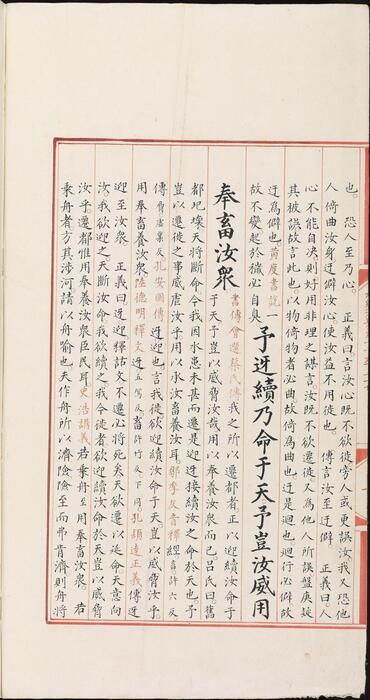 也。 恐人至乃心。 正義曰言汝心既不欲徙旁人或更誤汝我又恐他
人倚曲汝身迂僻汝心使汝益不用徙也。 傳言汝至迂僻 正義曰人
心不能自決則好用非理之謀言汝既不欲遷徙又爲他人所誤盤庚疑
其被誤故言此也以物倚物者必曲故倚爲曲也。迂是迴也迴行必僻故
迂爲僻也黄度書說一
故不變起於穢必自臭
予迓續乃命于天予豈汝威用
奉畜汝衆
書傳會選蔡氏傳我之所以遷都者正以迎續汝命于
于天予豈以威脅汝哉用以奉養汝衆而已。吕氏曰舊
都圮壞天將斷命今我因水患未甚而遷是迎接續汝之命於天也。予
豈以遷徙之事威虐汝乎用以承汝畜養汝耳鄒季友音釋經畜許六反
傳脅虛業反孔安國傳迓迎也言我徙欲迎續汝命于天豈以威脅汝乎。
用奉畜養汝衆陸德明釋文迓五駕反畜許竹反下同孔穎達正義傳迓
迎至汝衆 正義曰迓迎釋詁文不遷必將死矣天欲遷以延命天意向
汝。我欲迎之天斷汝命我欲續之我今徙者欲迎續汝命於天豈以威脅
汝乎。遷都惟用奉養汝衆臣民耳史浩講義若乘舟至用奉畜汝衆 若
乘舟者方其涉河請以舟喻也夫作舟所以濟險險至而弗肯濟則舟將